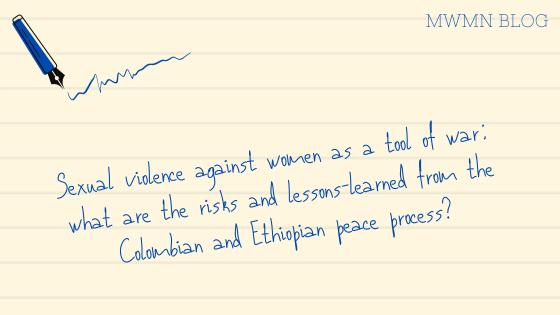 MWMN BLOG
Sexual violence against women as a tool of war:
what are the risks and lessons-learned from the
Colombian and Ethiopian peace process?